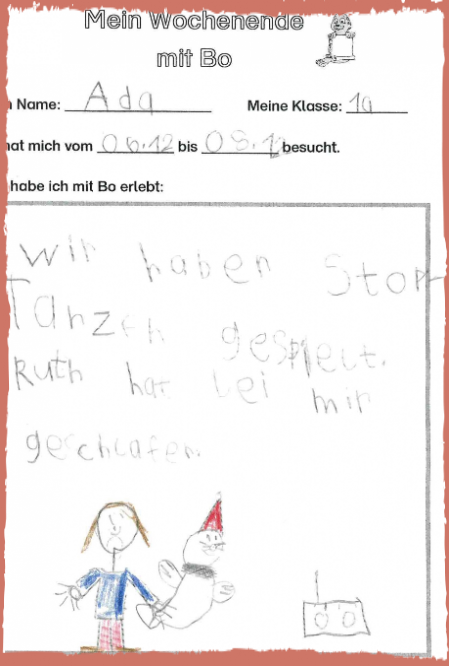 Mein Wochenende
mit Bo
Name: Ada Meine Klasse: 1a
hat mich vom 06.12 bis 08.12 besucht.
habe ich mit Bo erlebt:
wir haben Stop-
Tanzen gespielt.
Ruth hat bei mir
geschlafen.